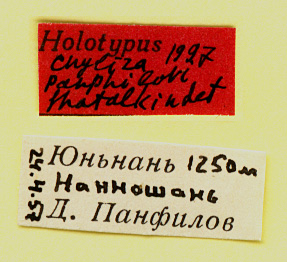 Holotypus 1997
Chyliza
panphilovi
Shatalkin det
Юньнань 1250 м
Нанношань
Д. Панфилов
24.4.57